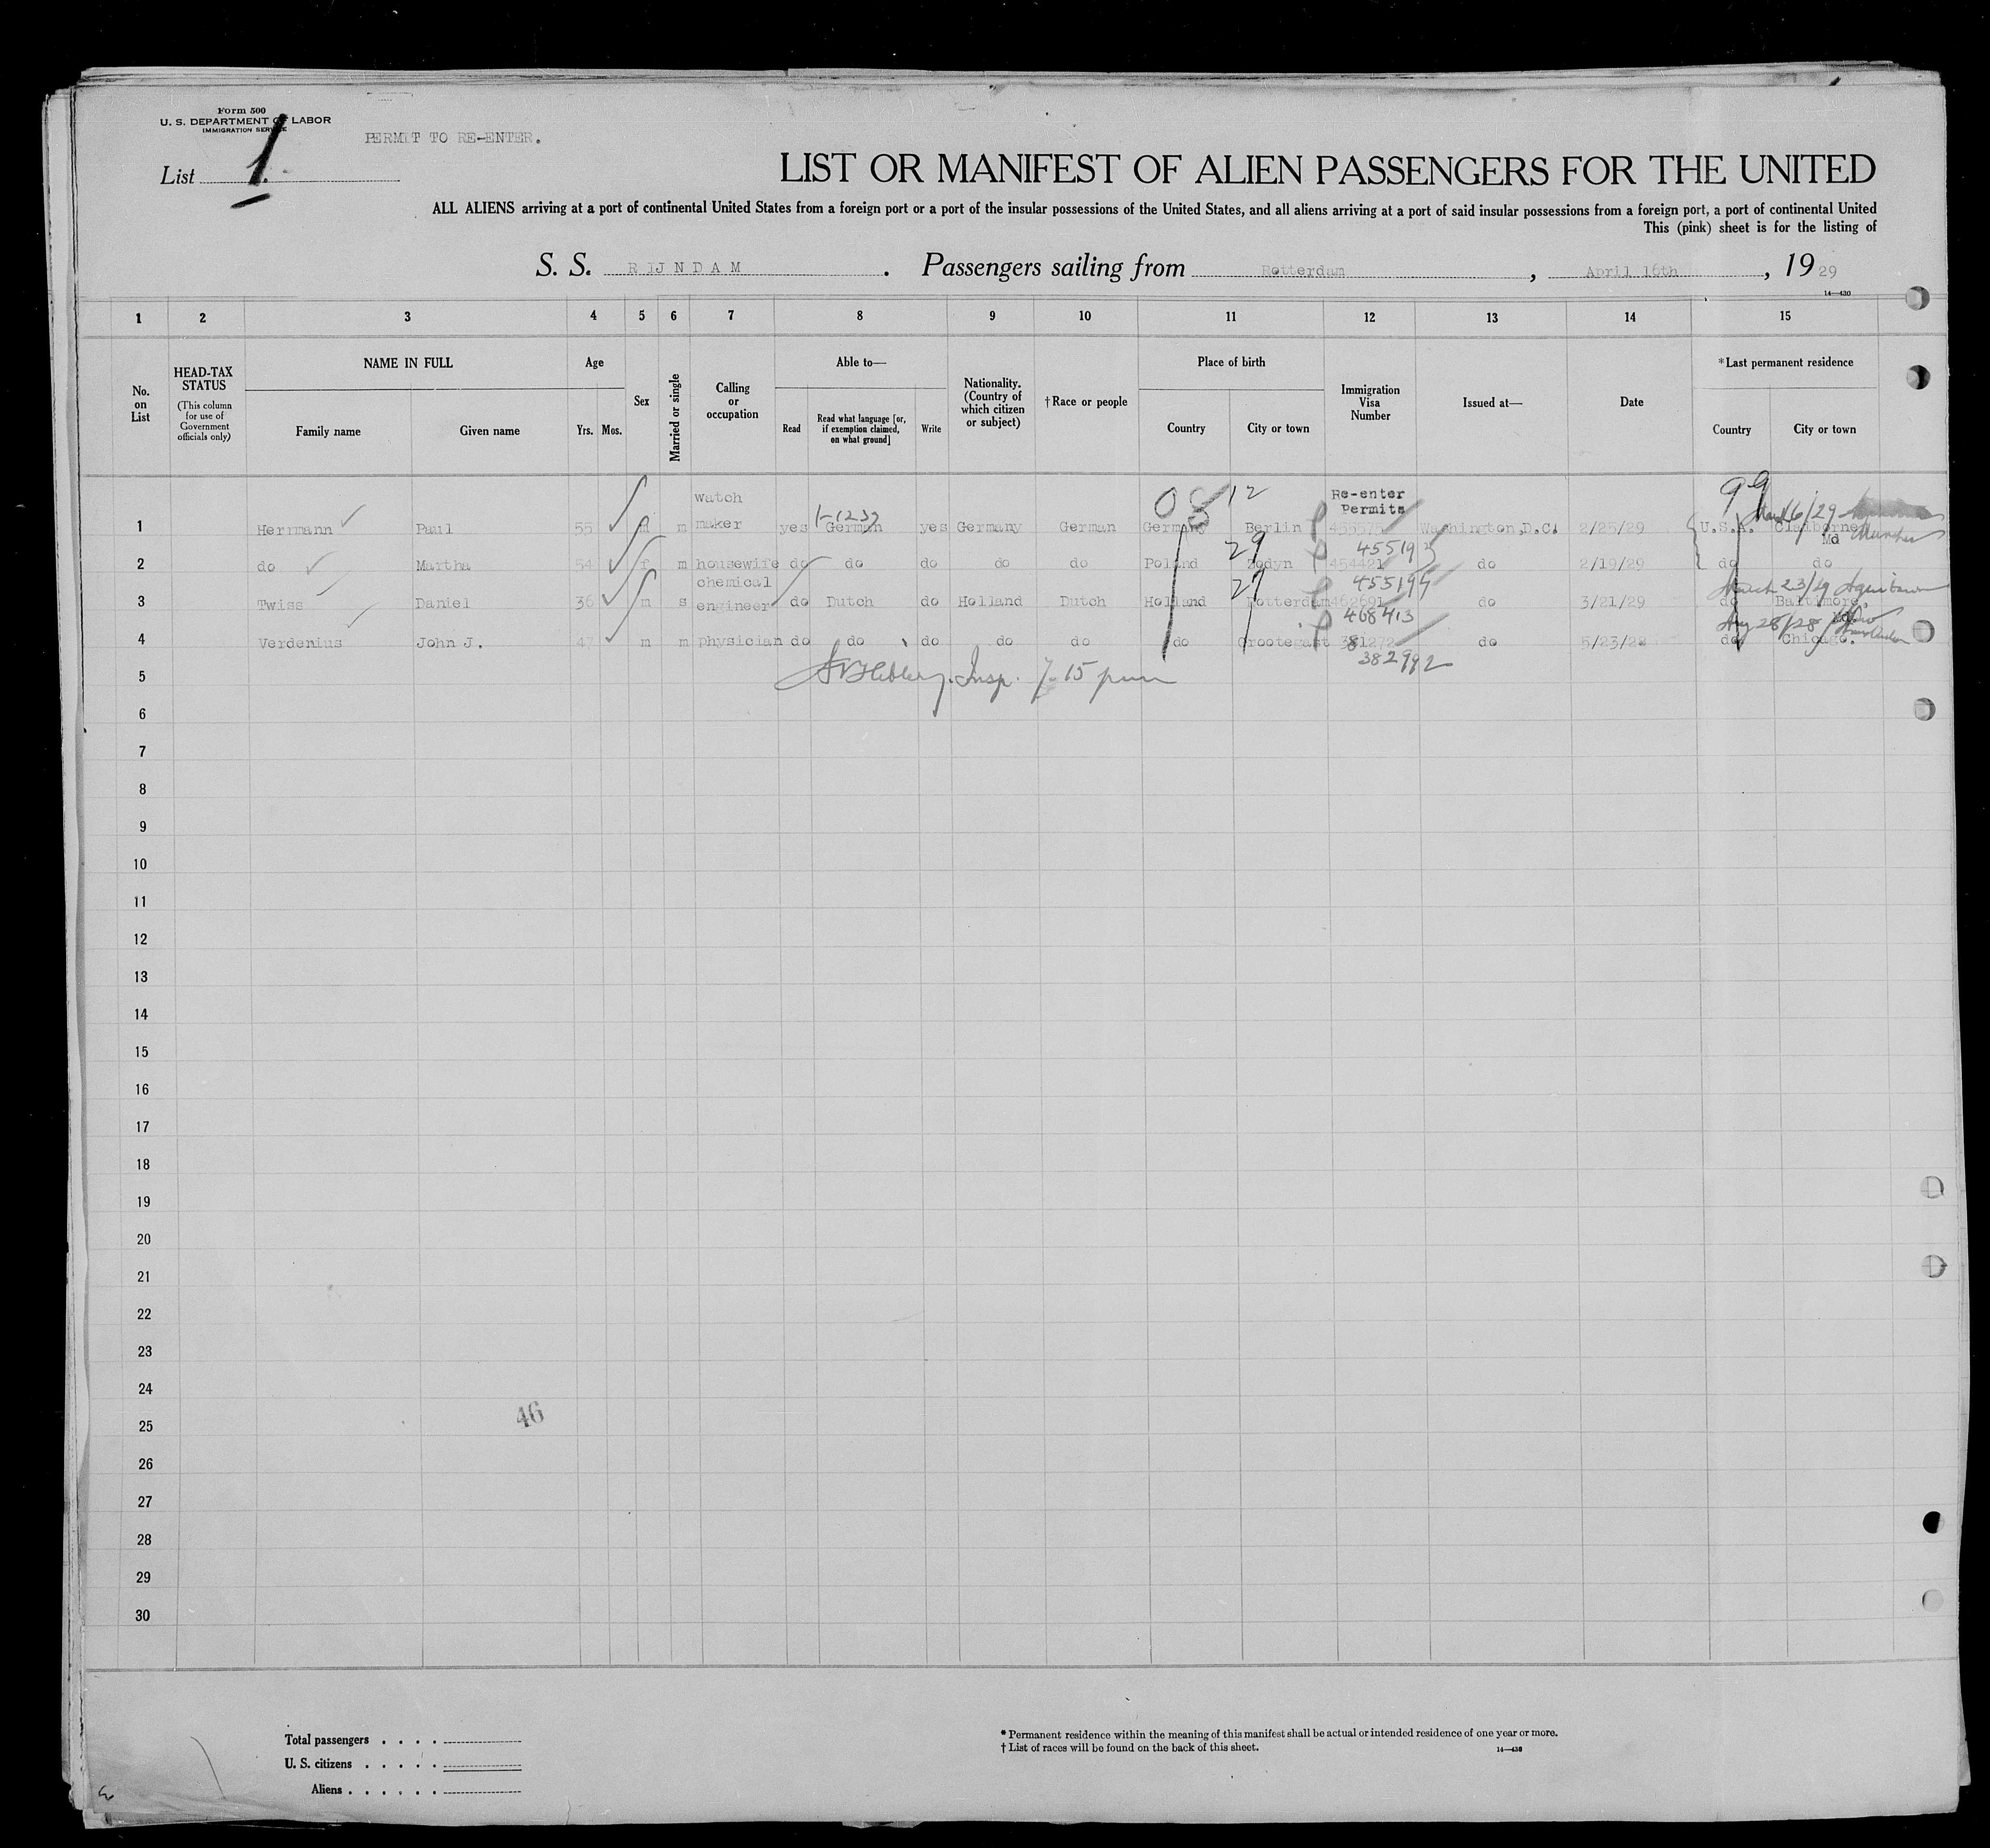 Form 500
U. S. DEPARTMENT OF LABOR
IMMIGRATION SERVICE
PERMIT TO RE-ENTER.
List 1.
LIST OR MANIFEST OF ALIEN PASSENGERS FOR THE UNITED
ALL ALIENS arriving at a port of continental United States from a foreign port or a port of the insular possessions of the United States, and all aliens arriving at a port of said insular possessions from a foreign port, a port of continental United
This (pink) sheet is for the listing of
S. S. RIJNDAM . Passengers sailing from Rotterdam , April 16th , 1929
14—430
1 2 3 4 5 6 7 8 9 10 11 12 13 14 15
No. on List
HEAD-TAX STATUS
(This column for use of Government officials only)
NAME IN FULL
Family name Given name
Age
Yrs. Mos.
Sex
Married or single
Calling or occupation
Able to—
Read
Read what language [or, if exemption claimed, on what ground]
Write
Nationality. (Country of which citizen or subject)
†Race or people
Place of birth
Country City or town
Immigration Visa Number
Issued at—
Date
*Last permanent residence
Country City or town
08 12 Re-enter Permits 99
1 Herrmann Paul 55 m m watch maker yes German yes Germany German Germany Berlin 455575 Washington,D.C. 2/25/29 U.S.A. Claiborne Md
29 455197
2 do Martha 54 f m housewife do do do do do Poland Zodyn 454421 do 2/19/29 do do
29 455199 March 23/29
3 Twiss Daniel 36 m s chemical engineer do Dutch do Holland Dutch Holland Rotterdam 462691 do 3/21/29 do Baltimore,
468413 Aug 28/28
4 Verdenius John J. 47 m m physician do do do do do do Grootegast 381272 do 5/23/28 do Chicago.
382992
5 Insp. 7-15 pm
6
7
8
9
10
11
12
13
14
15
16
17
18
19
20
21
22
23
24
46
25
26
27
28
29
30
Total passengers . . . .
U. S. citizens . . . . .
Aliens . . . . . .
* Permanent residence within the meaning of this manifest shall be actual or intended residence of one year or more.
† List of races will be found on the back of this sheet.
14—430